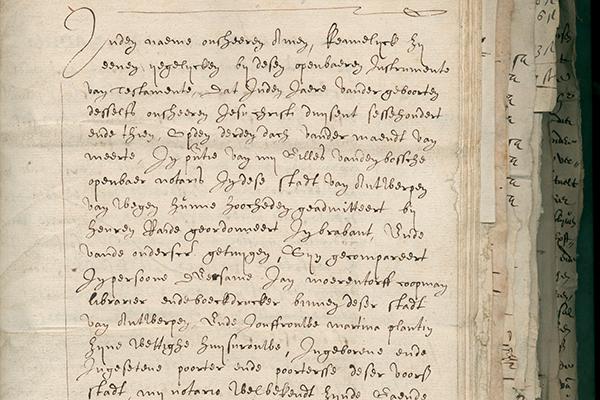 Inden naeme onsheeren Amen, Kennelyck zij
eenen yegelycken by desen openbaeren Instrumente
van Testamente, dat Inden Jaere vander geboorten
desselfs onsheeren Jesu christi duysent sessehondert
ende thien, Opden derden dach vander maendt van
meerte, In p̄ntie van my Gilles vanden bossche
openbaer notaris In dese stadt van Antwerpen
van wegen hūnne hoocheden geadmitteert by
heuren Raide geordonneert In brabant, Ende
vande onderscr getuygen, Zyn gecompareert
In persoone dEersame Jan moerentorff coopman
librarier ende boeckdrucker binnen deser stadt
van Antwerpen, Ende Jouffrouwe martina plantin
zyne wettighe huysvrouwe, Ingeborene ende
Ingesetene poorter ende poortersse deser voors
stadt, my notario welbekendt zynde Gaende